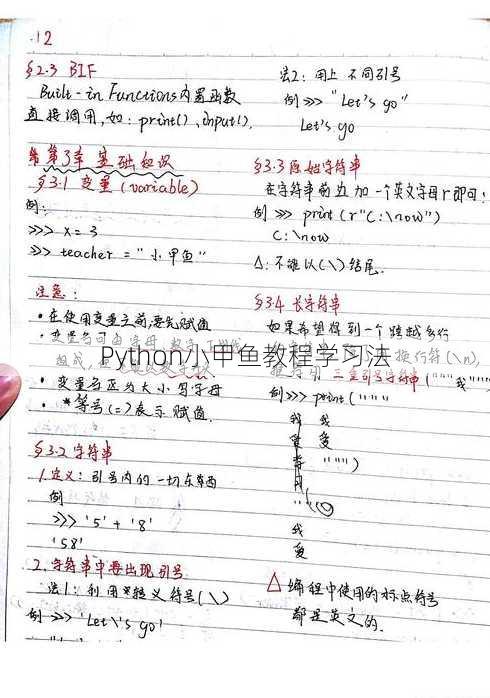 12
§2.3 BIF
Built-in Functions内置函数
直接调用,如:print()、input().
第3章 基础知识
§3.1 变量 (variable)
例:
>>> x = 3
>>> teacher = "小甲鱼"
注意:
•在使用变量之前,要先赋值
•变量名可由字母、数字、下划线
组成,
•变量名区分大小写字母
•*等号(=)表示赋值.
§3.2 字符串
1.定义:引号内的一切东西
例
>>> '5' + '8'
'58'
2.字符串中要出现引号
法1:利用*转义符号(\)
例 >>> 'Let\'s go'
法2:用上 不同引号
例 >>> "Let's go"
Let's go
§3.3 原始字符串
在字符串前边加一个英文字母r即可:
例 >>> print (r"C:\now")
C:\now
△:不能以(\)结尾.
§3.4 长字符串
如果希望得到一个跨越多行
换行符(\n),
三重引号字符串("""我""")
例>>> print("""
我
爱
""")
我
爱
△ 编程中使用的标点符号
都是英文的.
Python小甲鱼教程学习法